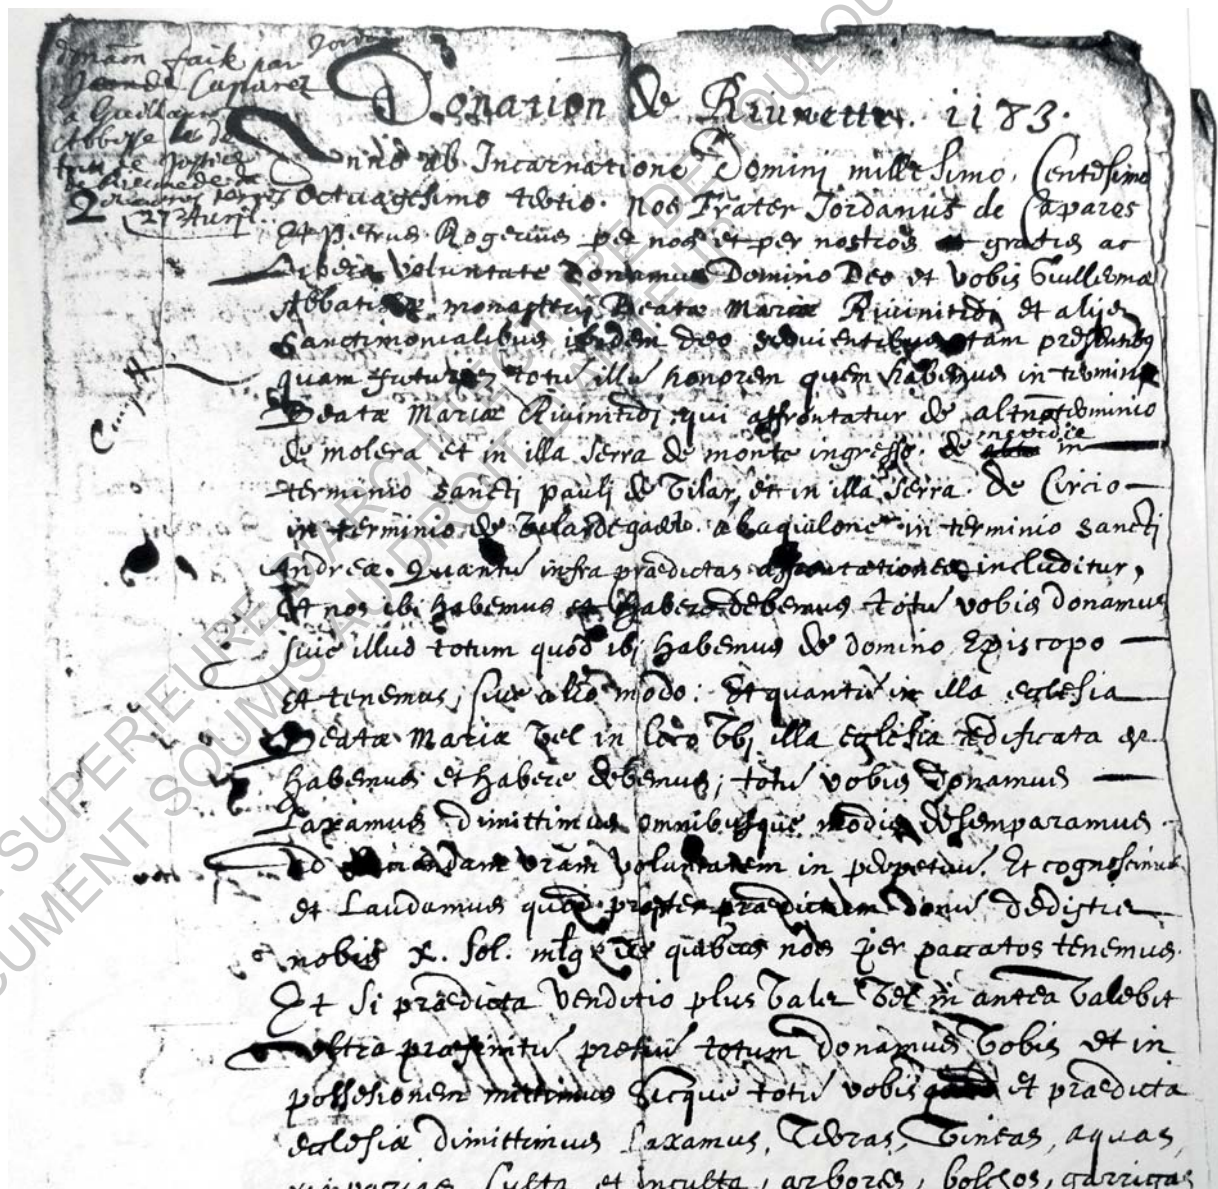 donaôn faite par Jordan
de Caparez
à Guillaume
Abbesse de
27 Avril.
Donation de Riunette. 1183.
Anno ab Incarnatione Dominj millesimo, Centesimo
Octuagesimo tertio. Nos Frater Jordanus de Capares
Et Petrus Rogerius per nos et per nostros gratis ac
Libera voluntate Donamus Domino Deo et vobis Guillerma
Abbatissæ monasterij Beatæ Mariæ Riuinitidj et alijs
Sanctimonialibus ibidem deo seruientibus tam præsentibus
quam futuris totũ illũ honorem quem habemus in termino
Beatæ Mariæ Riuinitidj quj affrontatur de altano in terminio
de molera et in illa serra de monte ingresso. de meridie in
terminio sanctj paulj de Vilar, et in illa serra. de Circio
in terminio de Vilar de gado. ab aquilone in terminio sanctj
Andreæ. Quantũ infra prædictas affrontationes includitur,
Et nos ibi habemus et habere debemus totũ vobis donamus
siue illud totum quod ibj habemus de domino Episcopo
et tenemus, siue alio modo: Et quantũ in illa eglesia
Beatæ Mariæ vel in loco vbj illa eglesia ædificata est
habemus et habere debemus; totũ vobis donamus
Laxamus dimittimus omnibusque modis desemparamus
ad vrãm voluntatem in perpetuũ. Et cognoscimus
et Laudamus quod propter prædictum donũ dedistis
nobis X. sol. mlg de quibus nos per paccatos tenemus.
Et si prædicta venditio plus valet vel in antea valebit
vltra præfinitũ pretiũ totum donamus vobis et in
possesionem mittimus sicque totũ vobis et prædicta
eglesiæ dimittimus Laxamus, Terras, Vineas, aquas,
culta et inculta, arbores, boscos, garrigas